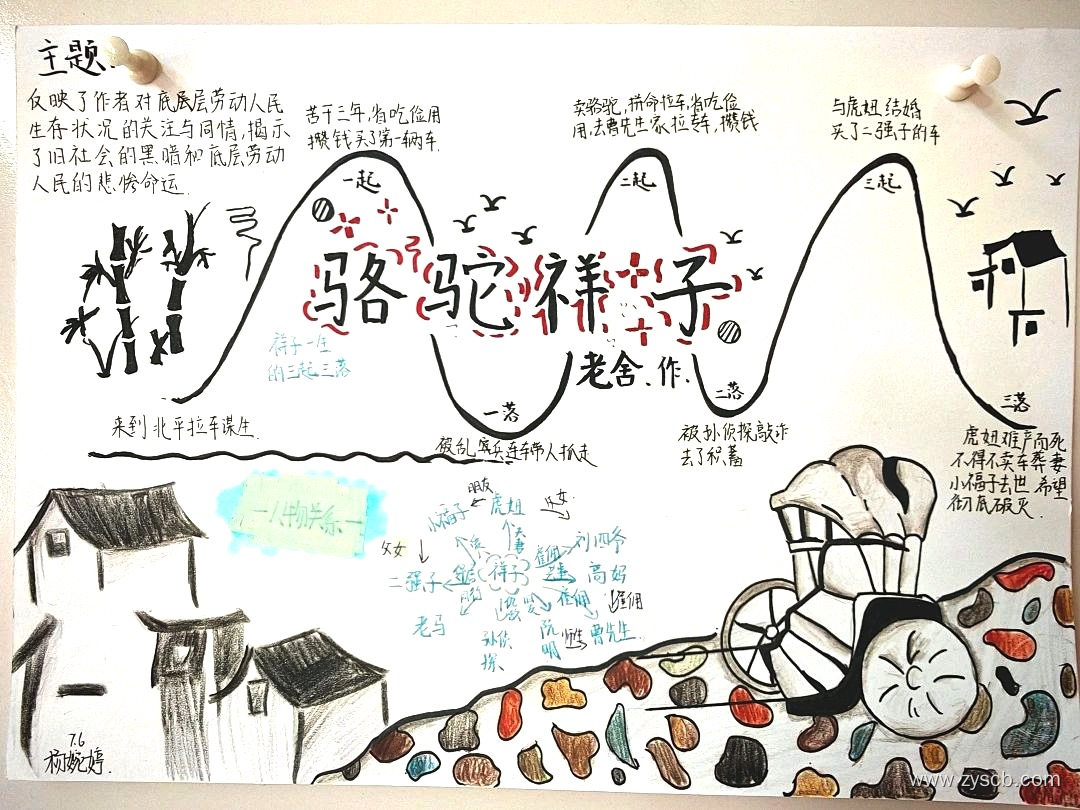 主题.
反映了作者对底层层劳动人民
生存状况的关注与同情,揭示
了旧社会的黑暗和底层劳动
人民的悲惨命运.
苦干三年,省吃俭用
攒钱买了第一辆车.
卖骆驼,拼命拉车,省吃俭
用,去曹先生家拉专车,攒钱
与虎妞结婚
买了二强子的车
一起
二起
三起
骆驼祥子
老舍.作.
祥子一生
的三起三落
来到北平拉车谋生.
一落
被乱兵连车带人抓走
二落
被孙侦探敲诈
去了积蓄
三落
虎妞难产而死
不得不卖车葬妻
小福子去世 希望
彻底破灭.
一人物关系一
朋友
虎妞
父女
小福子
夫妻
刘四爷
父女
雇佣
二强子
祥子
高妈
雇佣
雇佣
老马
孙侦
探
阮
明
师生
曹先生
7.6
杨婉婷.
www.zyscb.com